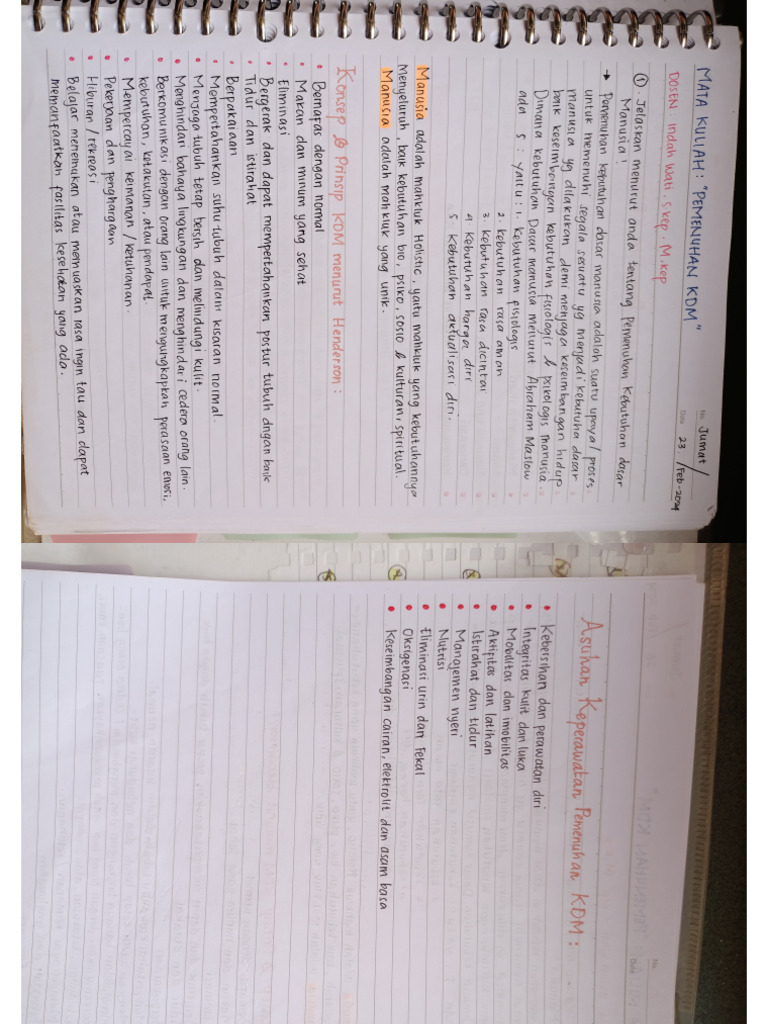 MATA KULIAH : "PEMENUHAN KDM"
No. Jumat /
Date 23 / Feb-2024
DOSEN Indah Wati . S kep . M.kep
① Jelaskan menurut anda tentang Pemenuhan Kebutuhan dasar
Manusia !
→ Pemenuhan kebutuhan dasar manusia adalah suatu upaya / proses
untuk memenuhi segala sesuatu yg menjadi kebutuha dasar
manusia yg dilakukan demi menjaga keseimbangan hidup
baik keseimbangan kebutuhan fisiologis & psikologis manusia.
Dimana kebutuhan Dasar manusia menurut Abraham Maslow
ada 5 : yaitu : 1. kebutuhan fisiologis
2. kebutuhan rasa aman
3. kebutuhan rasa dicintai
4 kebutuhan harga diri
5 kebutuhan aktualisasi diri.
Manusia adalah mahkluk Holistic, yaitu mahkluk yang kebutuhannya
menyeluruh, baik kebutuhan bio, psiko, sosio & kulturan, spiritual.
Manusia adalah mahkluk yang unik.
Konsep & Prinsip KDM menurut Henderson :
• Bernafas dengan normal
• Makan dan minum yang sehat
• Eliminasi
• Bergerak dan dapat mempertahankan postur tubuh dngan baik
• Tidur dan istirahat
• Berpakaian
• Mempertahankan suhu tubuh dalam kisaran normal.
• Menjaga tubuh tetap bersih dan melindungi kulit.
• Menghindari bahaya lingkungan dan menghindari cedera orang lain.
• Berkomunikasi dengan orang lain untuk mengungkapkan perasaan emosi,
kebutuhan, ketakutan, atau pendapat
• Mempercayai keimanan / ketuhanan.
• Pekerjaan dan penghargaan
• Hiburan / rekreasi
• Belajar menemukan atau memuaskan rasa ingin tau dan dapat
memanfaatkan fasilitas kesehatan yang ada.
Asuhan Keperawatan Pemenuhan KDM :
• Kebersihan dan perawatan diri
• Integritas kulit dan luka
• Mobilitas dan imobilitas
• Aktifitas dan latihan
• Istirahat dan tidur
• Manajemen nyeri
• Nutrisi
• Eliminasi urin dan Fekal
• Oksigenasi
• Keseimbangan cairan, elektrolit dan asam basa